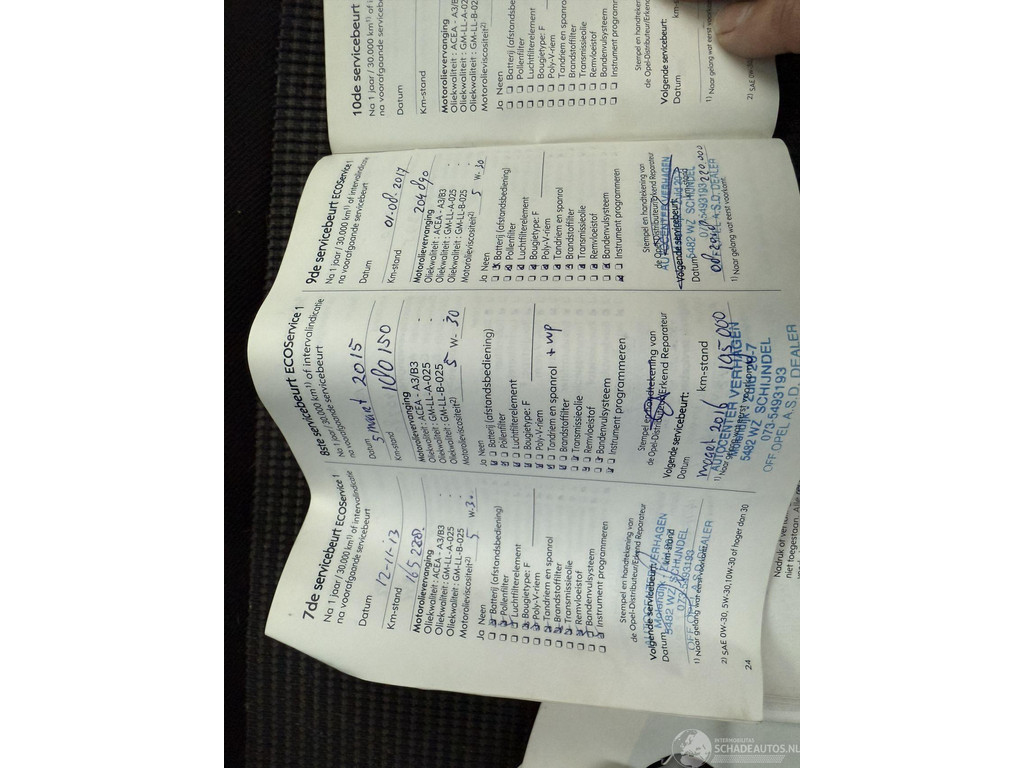 7de servicebeurt ECOService 1
Na 1 jaar / 30.000 km1) of intervalindicatie
na voorafgaande servicebeurt
Datum 12-11-13
Km-stand 165220.
Motorolievervanging
Oliekwaliteit : ACEA - A3/B3
Oliekwaliteit : GM-LL-A-025
Oliekwaliteit : GM-LL-B-025
Motorolieviscositeit2) 5 W-30
Ja Neen
Batterij (afstandsbediening)
Pollenfilter
Luchtfilterelement
Bougietype: F
Poly-V-riem
Tandriem en spanrol
Brandstoffilter
Transmissieolie
Remvloeistof
Bandenvulsysteem
Instrument programmeren
Stempel en handtekening van
de Opel-Distributeur/Erkend Reparateur
Volgende servicebeurt:
Datum km-stand
AUTOCENTER VERHAGEN
5482 WZ SCHIJNDEL
073-5493193
OFF. OPEL A.S.D. DEALER
1) Naar gelang wat eerst voorkomt.
2) SAE 0W-30, 5W-30, 10W-30 of hoger dan 30
24
8ste servicebeurt ECOService 1
Na 1 jaar / 30.000 km1) of intervalindicatie
na voorafgaande servicebeurt
Datum 5 maart 2015
Km-stand 180150
Motorolievervanging
Oliekwaliteit : ACEA - A3/B3
Oliekwaliteit : GM-LL-A-025
Oliekwaliteit : GM-LL-B-025
Motorolieviscositeit2) 5 W- 30
Ja Neen
Batterij (afstandsbediening)
Pollenfilter
Luchtfilterelement
Bougietype: F
Poly-V-riem
Tandriem en spanrol + wp
Brandstoffilter
Transmissieolie
Remvloeistof
Bandenvulsysteem
Instrument programmeren
Stempel en handtekening van
de Opel-Distributeur/Erkend Reparateur
Volgende servicebeurt:
Datum km-stand
maart 2016 195000
AUTOCENTER VERHAGEN
5482 WZ SCHIJNDEL
073-5493193
OFF. OPEL A.S.D. DEALER
1) Naar gelang wat eerst voorkomt.
9de servicebeurt ECOService 1
Na 1 jaar / 30.000 km1) of intervalindicatie
na voorafgaande servicebeurt
Datum 01-08-2017
Km-stand 204890
Motorolievervanging
Oliekwaliteit : ACEA - A3/B3
Oliekwaliteit : GM-LL-A-025
Oliekwaliteit : GM-LL-B-025
Motorolieviscositeit2) 5 W-30
Ja Neen
Batterij (afstandsbediening)
Pollenfilter
Luchtfilterelement
Bougietype: F
Poly-V-riem
Tandriem en spanrol
Brandstoffilter
Transmissieolie
Remvloeistof
Bandenvulsysteem
Instrument programmeren
Stempel en handtekening van
de Opel-Distributeur/Erkend Reparateur
Volgende servicebeurt:
Datum
08-2018 220.000
AUTOCENTER VERHAGEN
5482 WZ SCHIJNDEL
073-5493193
OFF. OPEL A.S.D. DEALER
1) Naar gelang wat eerst voorkomt.
10de servicebeurt
Na 1 jaar / 30.000 km1) of
na voorafgaande servicebeurt
Datum
Km-stand
Motorolievervanging
Oliekwaliteit : ACEA - A3/B
Oliekwaliteit : GM-LL-A-02
Oliekwaliteit : GM-LL-B-02
Motorolieviscositeit2)
Ja Neen
Batterij (afstandsbe
Pollenfilter
Luchtfilterelement
Bougietype: F
Poly-V-riem
Tandriem en spanro
Brandstoffilter
Transmissieolie
Remvloeistof
Bandenvulsysteem
Instrument program
Stempel en handtek
de Opel-Distributeur/Erken
Volgende servicebeurt:
Datum km-s
1) Naar gelang wat eerst
2) SAE 0W-
Nadruk of ver
niet toegestaan.
SCHADEAUTOS.NL